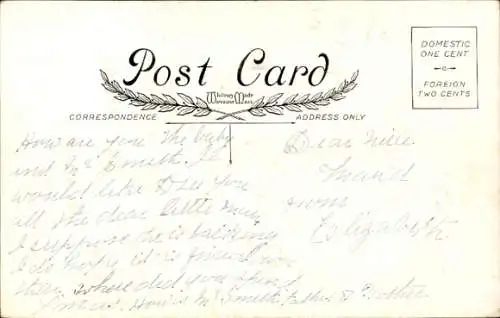 Post Card
Whitney Made
Worcester Mass
CORRESPONDENCE
ADDRESS ONLY
DOMESTIC
ONE CENT
FOREIGN
TWO CENTS
How are you the baby
and Mr Smith.
would like to see you
all the dear little
I suppose he is
I do hope
where did you spend
How is Mr Smith father &
Dear
Maud
from
Elizabeth